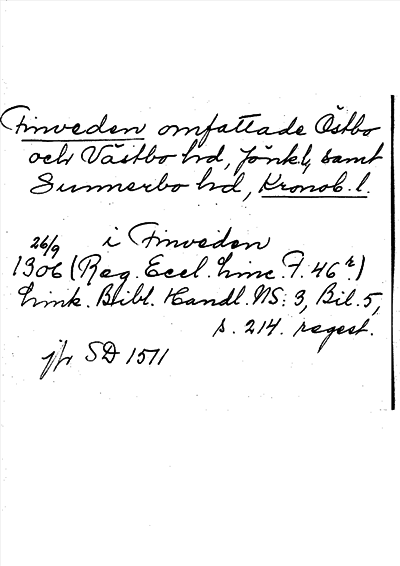 Finveden omfattade Östbo
och Västbo hd, Jönk.l, samt
Sunnerbo hd, Kronob. l.
i Finveden
26/9
1306 (Reg. Eccl. Linc. F. 46 r.)
Link. Bibl. Handl. NS: 3, Bil. 5,
s. 214. regest.
jfr SD 1511